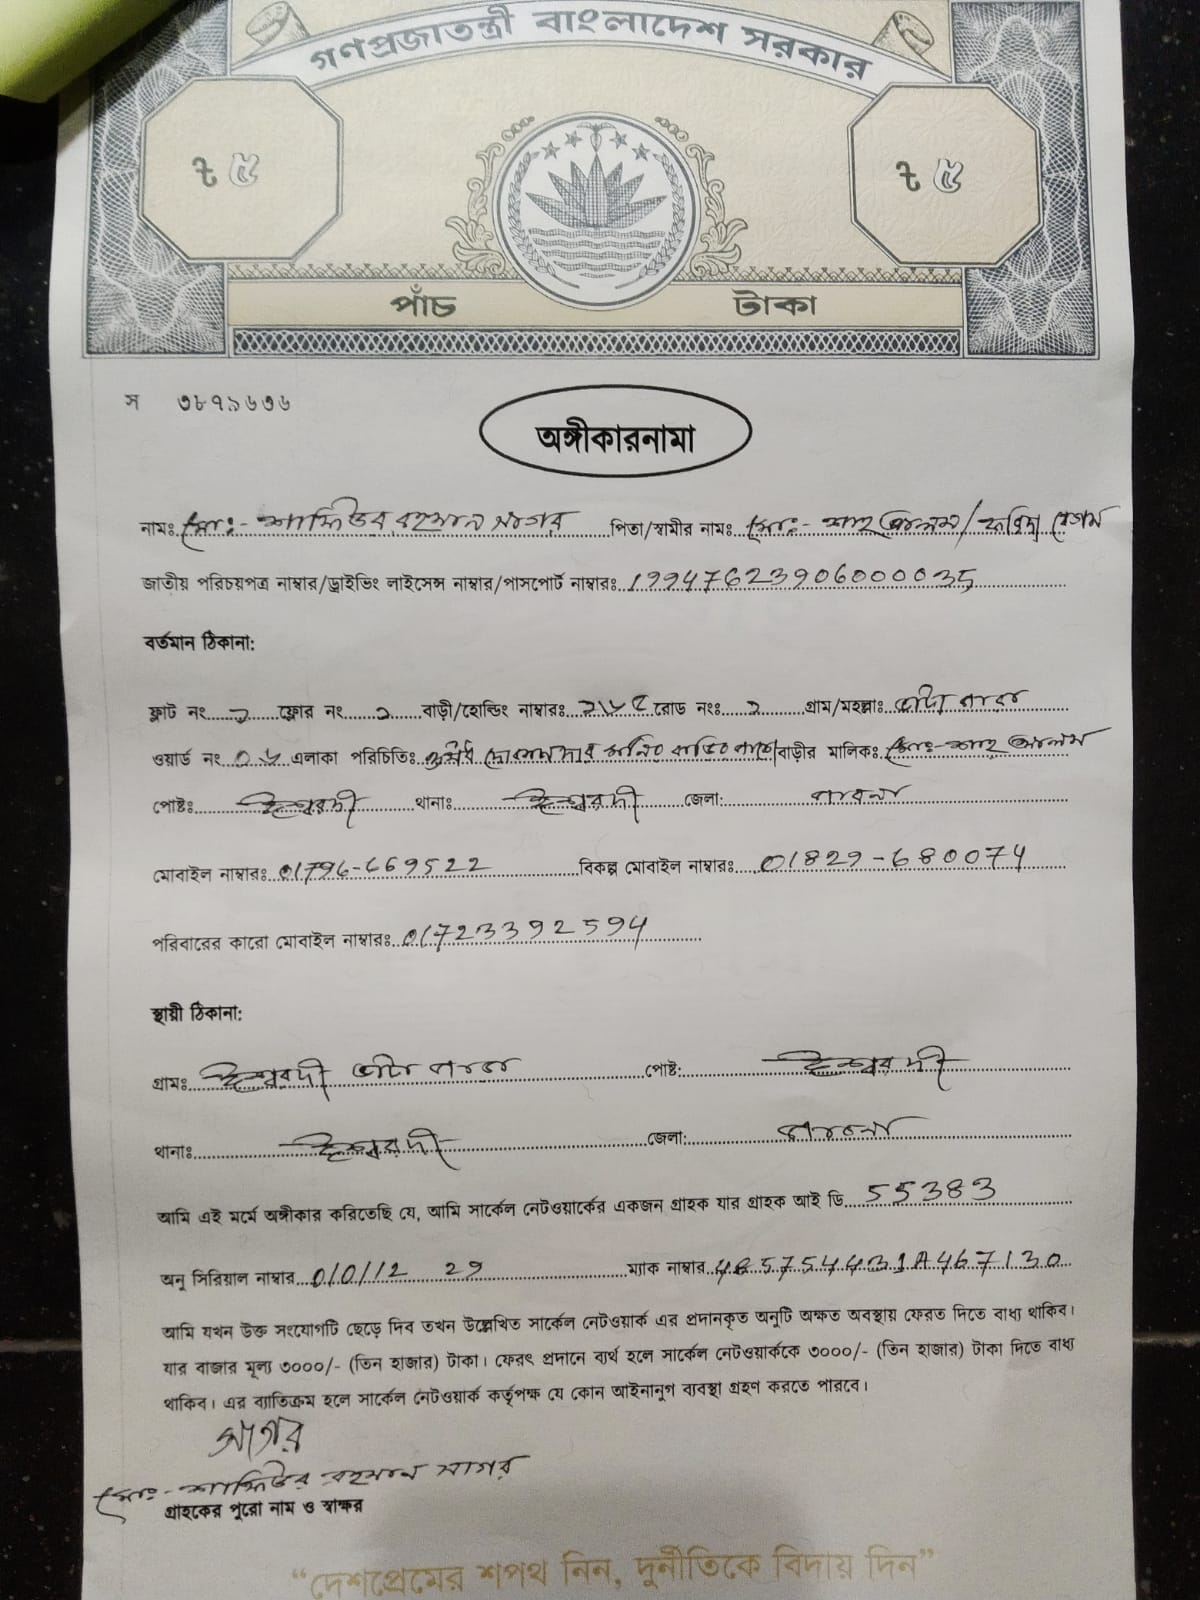 গণপ্রজাতন্ত্রী বাংলাদেশ সরকার
৳ ৫ ৳ ৫
পাঁচ টাকা
স ৩৮৭৯৬৩৬
অঙ্গীকারনামা
নামঃ মোঃ- শাফিউর রহমান সাগর পিতা/স্বামীর নামঃ মোঃ- শাহ আলম/ ফরিদা বেগম
জাতীয় পরিচয়পত্র নাম্বার/ড্রাইভিং লাইসেন্স নাম্বার/পাসপোর্ট নাম্বারঃ 19947623906000035
বর্তমান ঠিকানা:
ফ্লাট নং ফ্লোর নং বাড়ী/হোল্ডিং নাম্বারঃ রোড নংঃ গ্রাম/মহল্লাঃ
ওয়ার্ড নং এলাকা পরিচিতিঃ বাড়ীর মালিকঃ মোঃ- শাহ আলম
পোষ্টঃ ঈশ্বরদী থানাঃ ঈশ্বরদী জেলা: পাবনা
মোবাইল নাম্বারঃ 01796-669522 বিকল্প মোবাইল নাম্বারঃ 01829-680074
পরিবারের কারো মোবাইল নাম্বারঃ 01723392594
স্থায়ী ঠিকানা:
গ্রামঃ ঈশ্বরদী পোষ্ট: ঈশ্বরদী
থানাঃ ঈশ্বরদী জেলা: পাবনা
আমি এই মর্মে অঙ্গীকার করিতেছি যে, আমি সার্কেল নেটওয়ার্কের একজন গ্রাহক যার গ্রাহক আই ডি 55383
অনু সিরিয়াল নাম্বার 0/0/12 29 ম্যাক নাম্বার
আমি যখন উক্ত সংযোগটি ছেড়ে দিব তখন উল্লেখিত সার্কেল নেটওয়ার্ক এর প্রদানকৃত অনুটি অক্ষত অবস্থায় ফেরত দিতে বাধ্য থাকিব।
যার বাজার মূল্য ৩০০০/- (তিন হাজার) টাকা। ফেরৎ প্রদানে ব্যর্থ হলে সার্কেল নেটওয়ার্ককে ৩০০০/- (তিন হাজার) টাকা দিতে বাধ্য
থাকিব। এর ব্যাতিক্রম হলে সার্কেল নেটওয়ার্ক কর্তৃপক্ষ যে কোন আইনানুগ ব্যবস্থা গ্রহণ করতে পারবে।
সাগর
মোঃ- শাফিউর রহমান সাগর
গ্রাহকের পুরো নাম ও স্বাক্ষর
“দেশপ্রেমের শপথ নিন, দুর্নীতিকে বিদায় দিন”